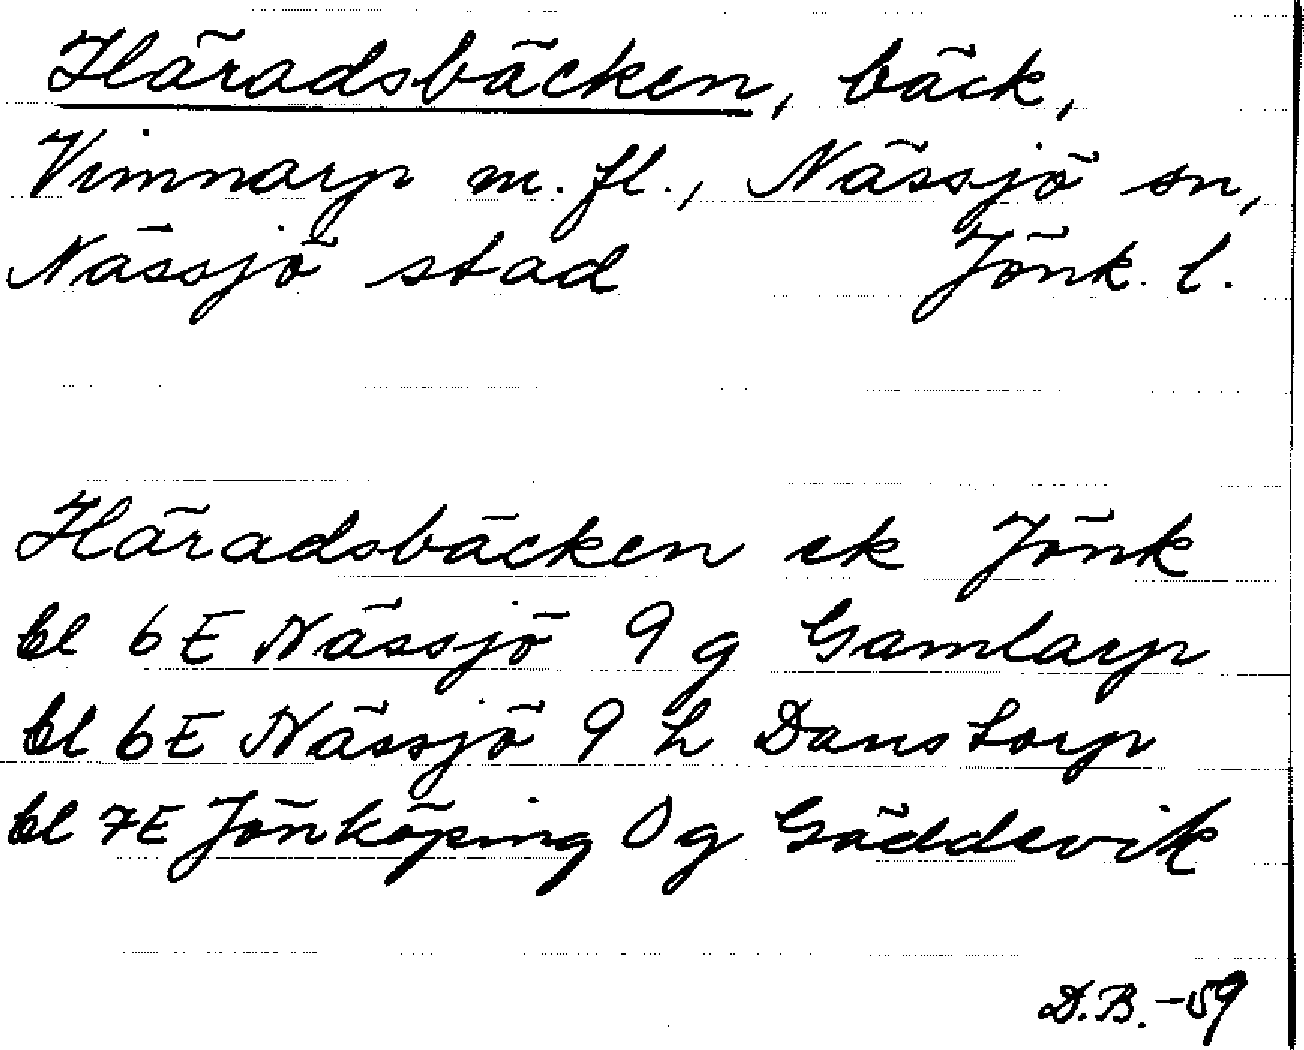 Häradsbäcken, bäck,
Vimnarp m.fl., Nässjö sn,
Nässjö stad Jönk. l.
Häradsbäcken ek Jönk
bl 6E Nässjö 9 g Gamlarp
bl 6E Nässjö 9 h Danstorp
bl 7E Jönköping 0g Gäddevik
D.B. -59